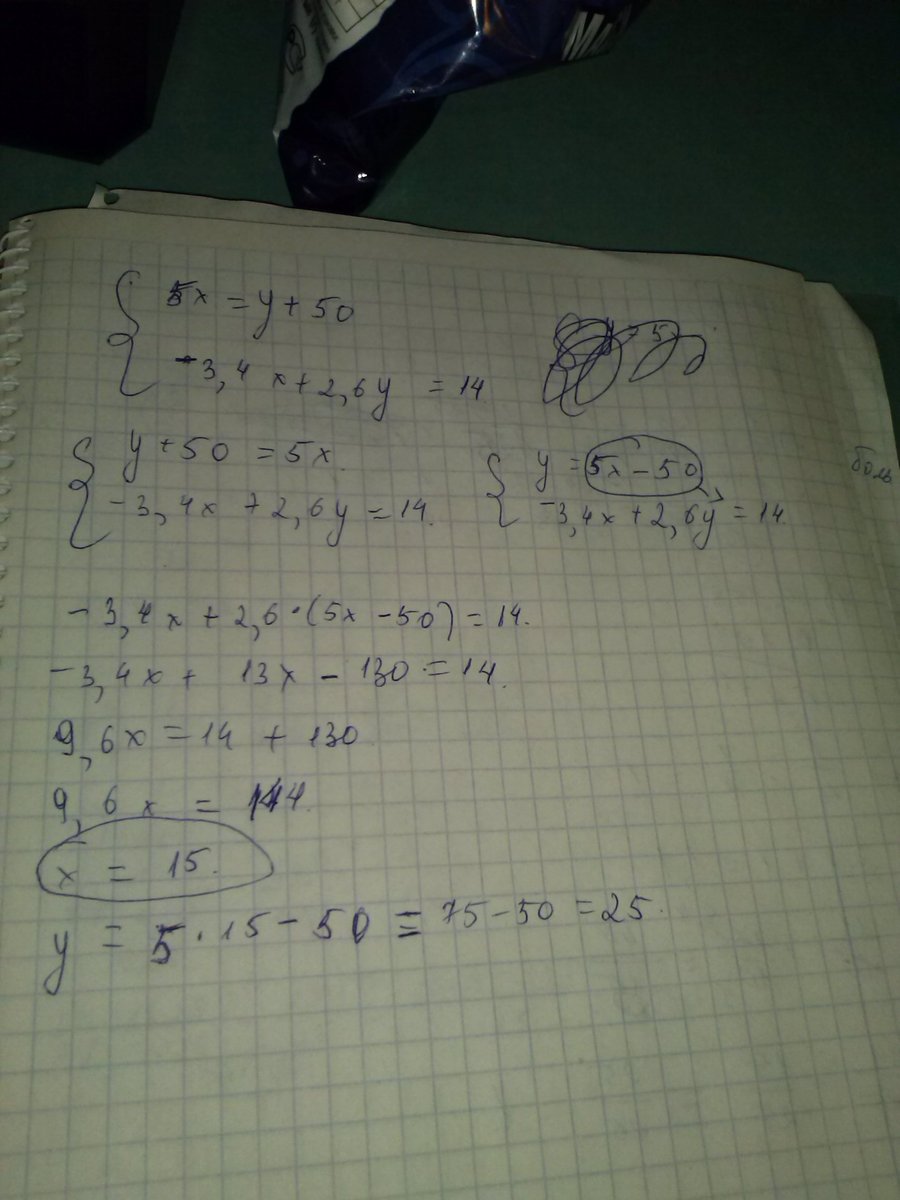 5x = y + 50
-3,4 x + 2,6y = 14
y + 50 = 5x.
-3,4x + 2,6y = 14.
y = 5x - 50
-3,4x + 2,6y = 14.
боль
-3,4x + 2,6·(5x - 50) = 14.
-3,4x + 13x - 130 = 14.
9,6x = 14 + 130
9,6x = 144.
x = 15.
y = 5·15 - 50 = 75 - 50 = 25.